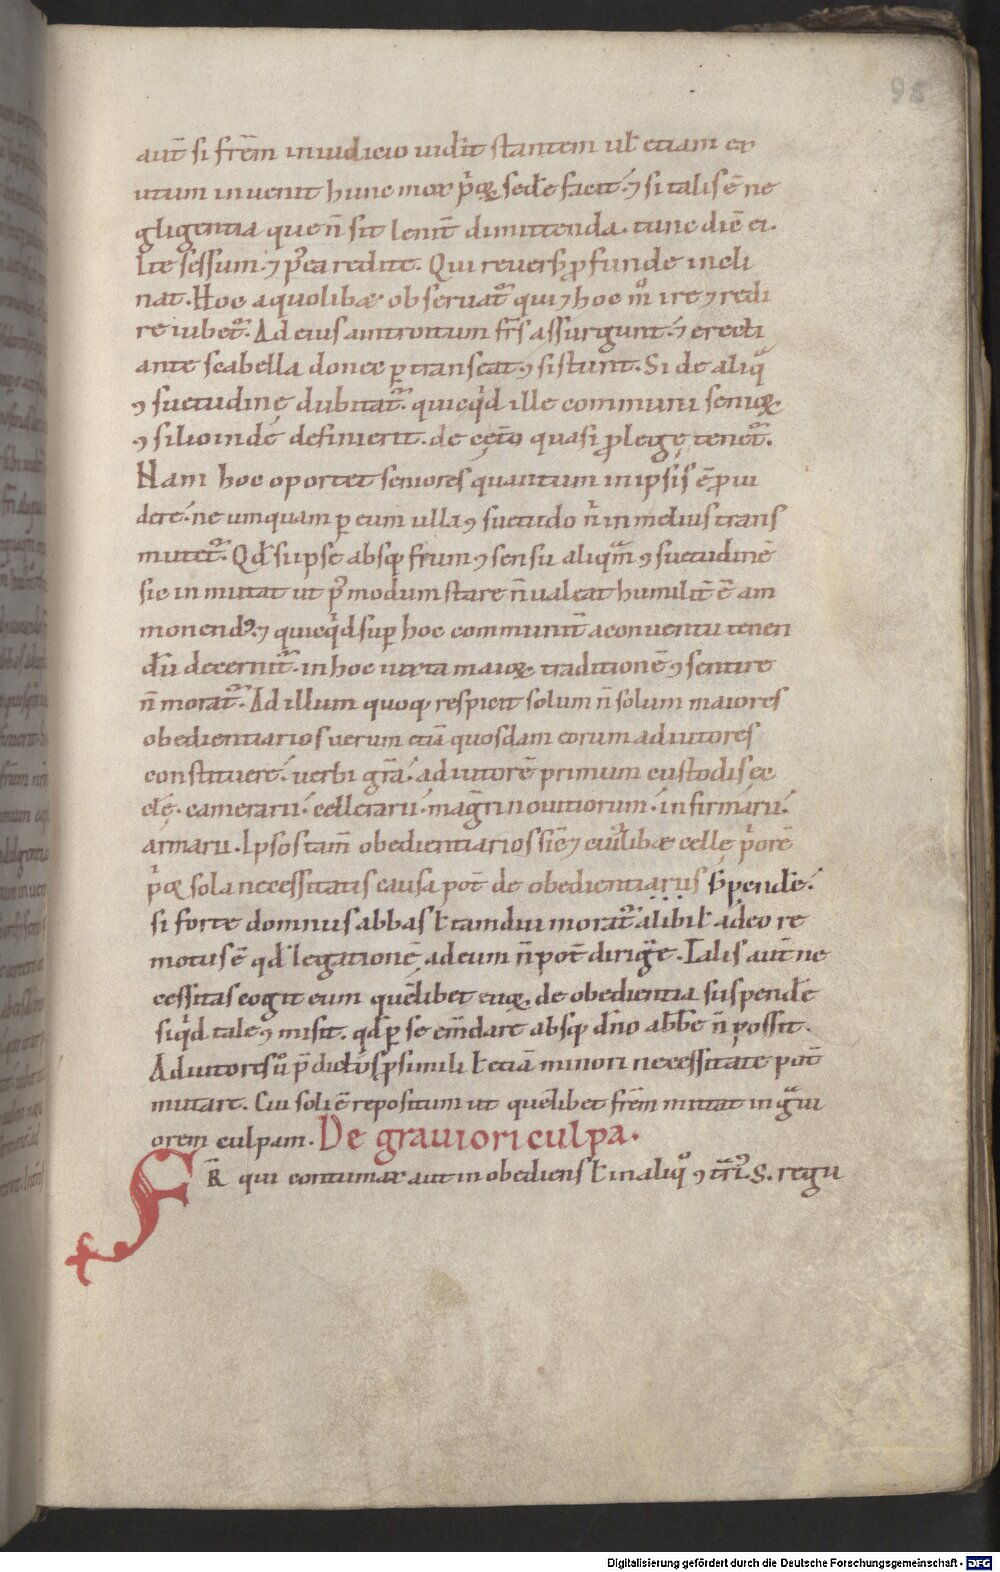 95
aut̄ si fr̄em in iudicio uiderit stantem ul̄ etiam ex
utum inuenit hunc mox p̄oꝝ sedere facit. ⁊ si talis ē ne
gligentia que n̄ sit lenit̄ dimittenda. tunc dic̄ ei.
Ite sessum. ⁊ p̄ea redite. Qui reuersi ꝓfunde incli
nat. Hoc a quolibæ obseruatͬ qui ⁊ hoc m̊ ire ⁊ redi
re iubetͬ. Ad eius introitum fr̄s assurgunt. ⁊ erecti
ante scabella donec ꝑtranseat ꝯsistunt. Si de aliq̊
ꝯsuetudinę dubitatͬ. quicq̇d ille communi senioꝝ
ꝯsilio inde definierit. de cęt̄o quasi ꝓ lege tenetͬ.
Nam hoc oportet seniores quantum in ipsis ē ꝓui
dere. ne umquam ꝑ eum ulla ꝯsuetudo n̄ in melius trans
mutetͬ. Qđ si ipse absq; fr̄um ꝯsensu aliquam ꝯsuetudinē
sic inmutat ut p̄ modum stare n̄ ualeat humilit̄ ē am
monendꝰ. ⁊ quicq̇d suꝑ hoc communit̄ a conuentu tenen
dū decernitͬ. in hoc iuxta maioꝝ traditionē ꝯsentire
n̄ moratͬ. Ad illum quoq; respicit solum n̄ solum maiores
obedientiarios uerum etiā quosdam eorum adiutores
constituere. uerbi gr̄a. adiutorē primum custodis ec
clę. camerarii. cellerarii. magr̄i nouitiorum. infirmarii.
armarii. Ipsos tam̄ obedientiarios sic̄ ⁊ cuiuslibæ cellę p̊orē
p̊oꝝ sola necessitatis causa pot̄ de obedientiariis sꝰpendere.
si forte domnus abbas ł tamdiu moratͬ alibi ł adeo re
motus ē qđ legationē ad eum n̄ pot̄ dirigere. Talis aut̄ ne
cessitas cogit eum quēlibet euꝝ de obedientia suspendere
si q̇d tale ꝯmisit. qđ ꝑ se em̄dare absq; dn̄o abb̄e n̄ possit.
Adiutores ů p̄dictos ꝓ simili ł etiā minori necessitate pot̄
mutare. Cui soli ē repositum ut quēlibet fr̄em mittat in gͣui
orem culpam. De grauiori culpa.
SR̄ qui contumax aut inobediens ł in aliq̊ ꝯtͣri. S. regu
Digitalisierung gefördert durch die Deutsche Forschungsgemeinschaft - DFG